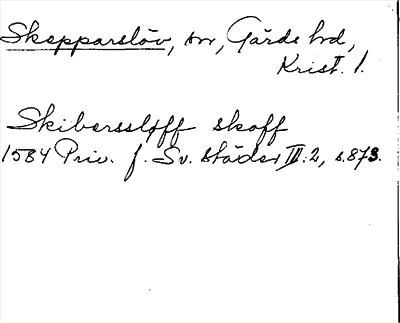 Skepparslöv, sn, Gärds hd,
Krist. l.
Skibersslöff skoff
1584 Priv. f. Sv. städer III:2, s.873.